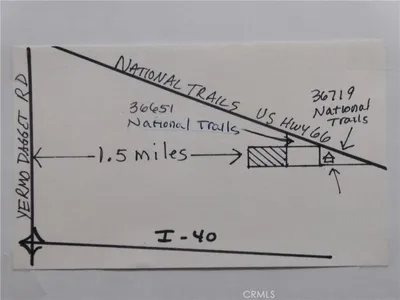 NATIONAL TRAILS US HWY 66
36651
National Trails
36719
National
Trails
YERMO DAGGET RD
1.5 miles
I-40
CRMLS